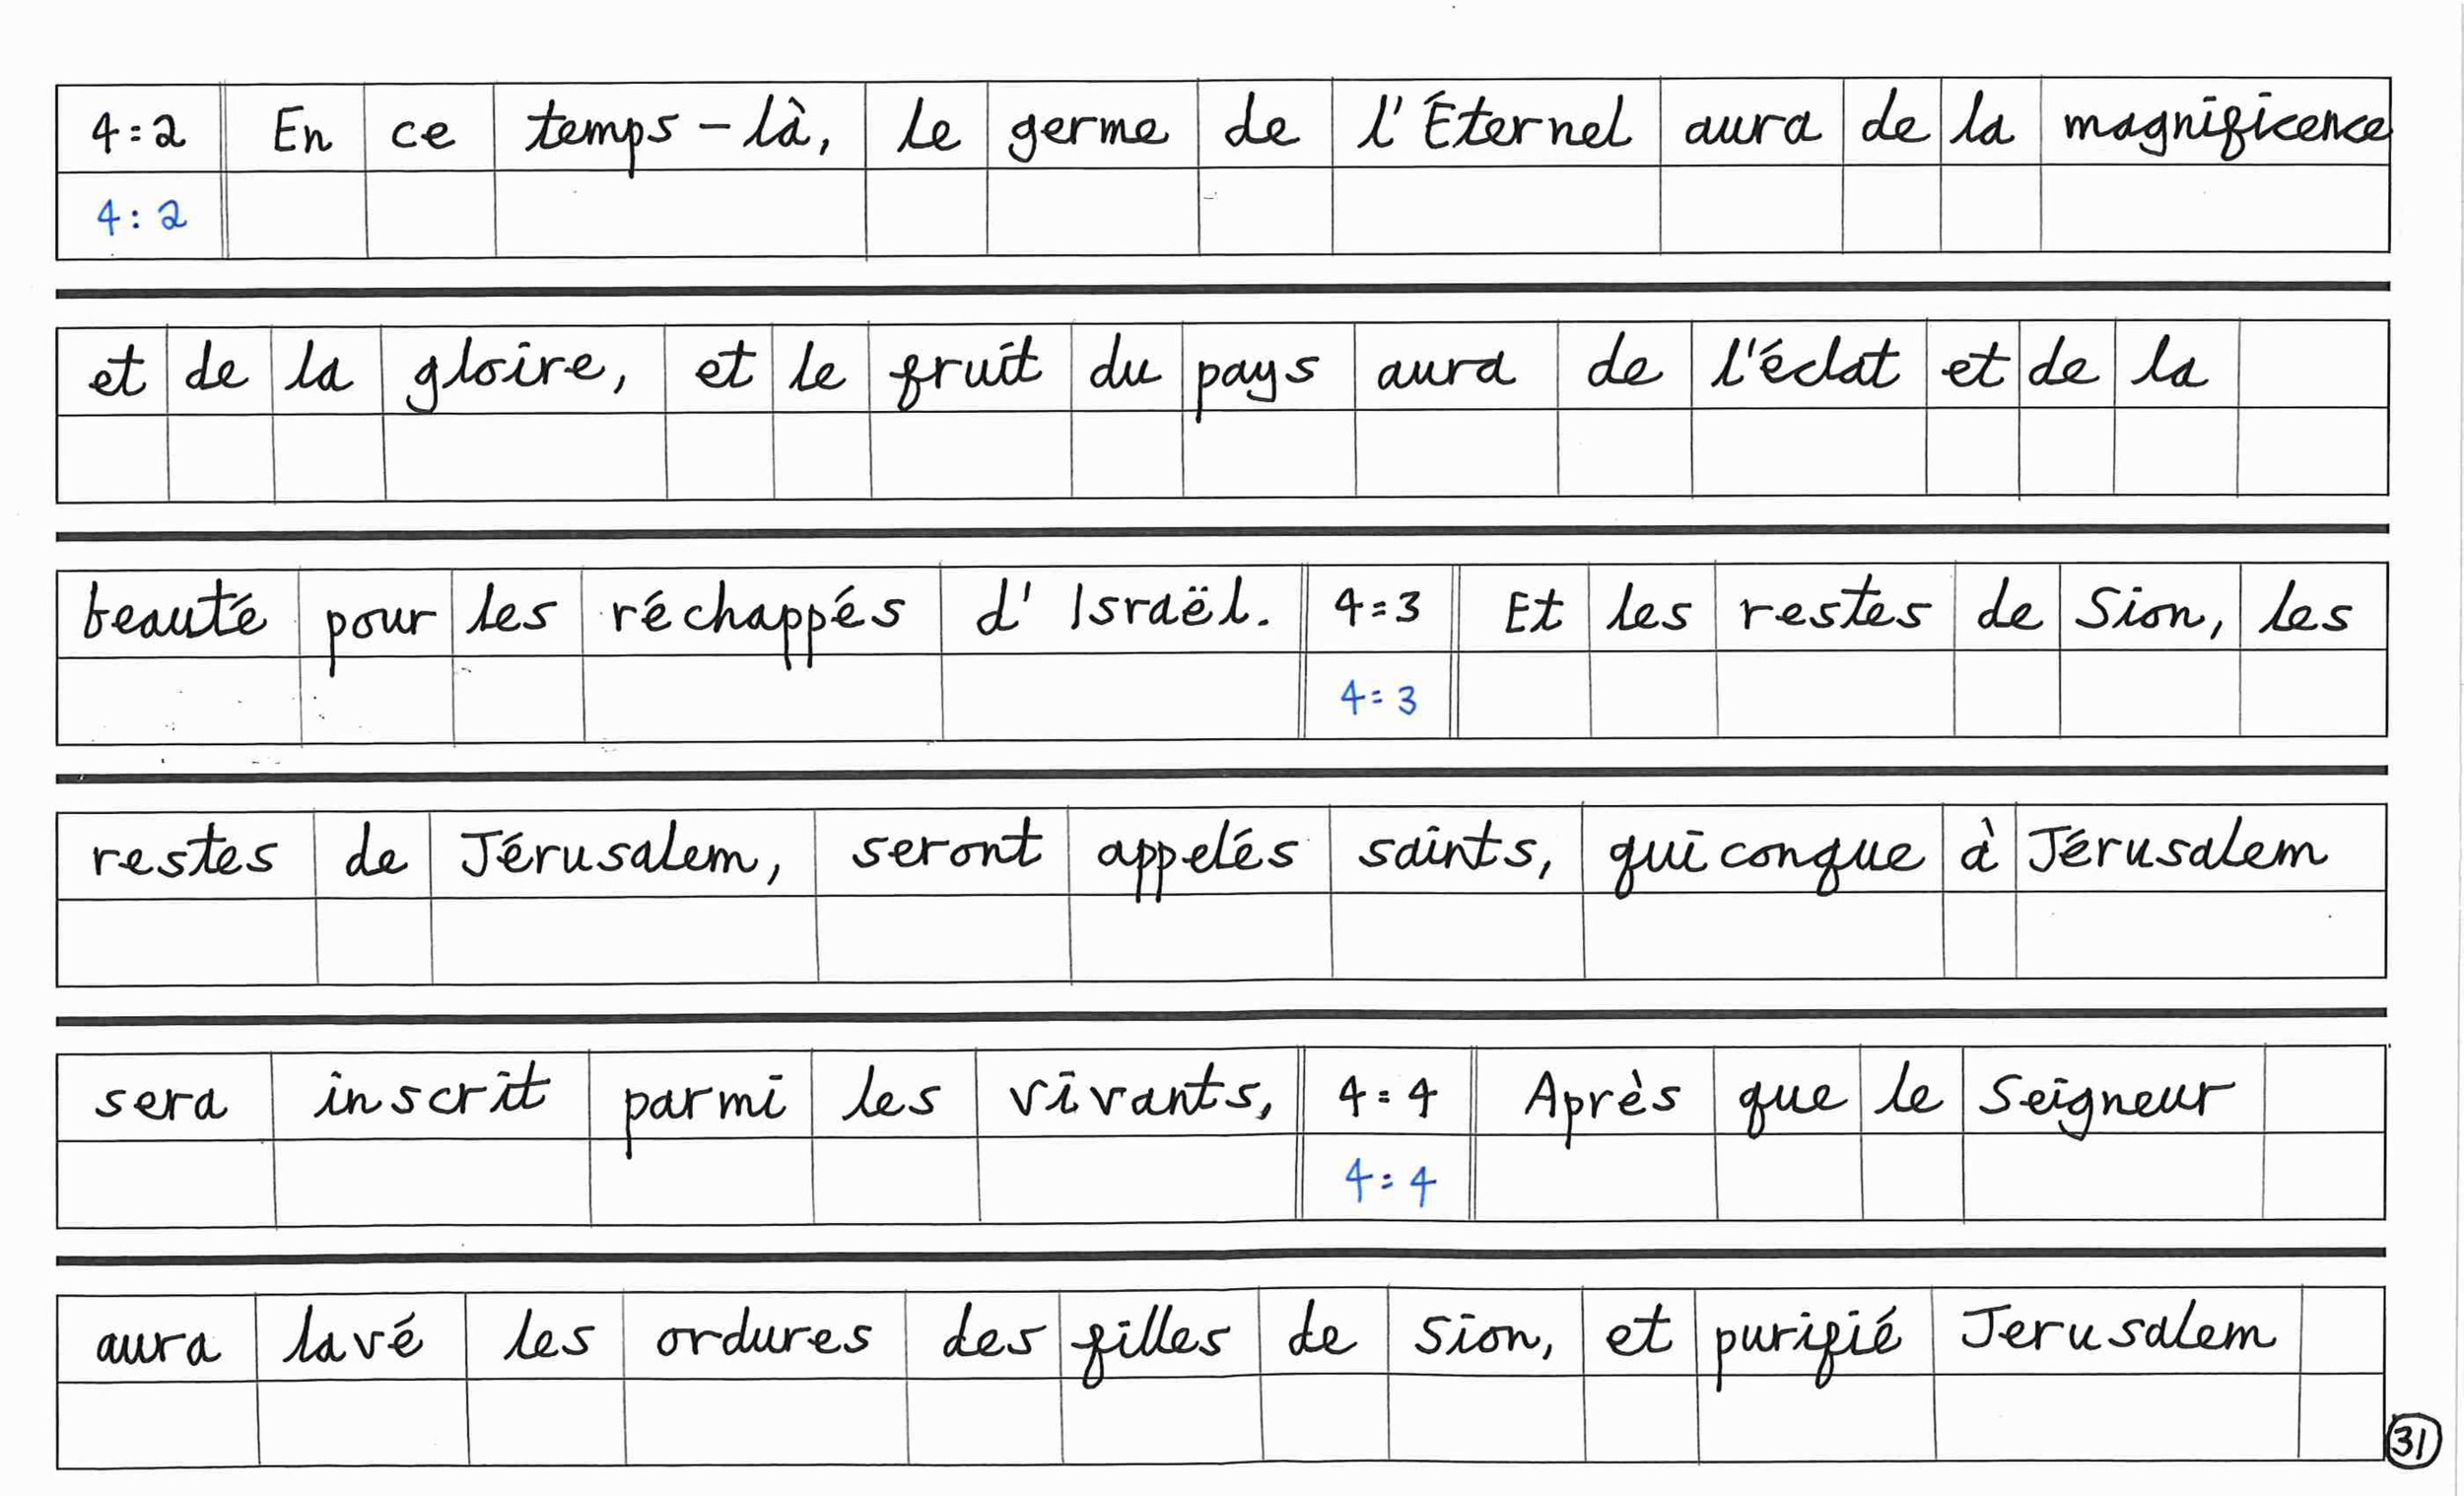 4:2 En ce temps-là, le germe de l'Éternel aura de la magnificence
4:2
et de la gloire, et le fruit du pays aura de l'éclat et de la
beauté pour les réchappés d'Israël. 4:3 Et les restes de Sion, les
4:3
restes de Jérusalem, seront appelés saints, quiconque à Jérusalem
sera inscrit parmi les vivants, 4:4 Après que le Seigneur
4:4
aura lavé les ordures des filles de Sion, et purifié Jerusalem
31